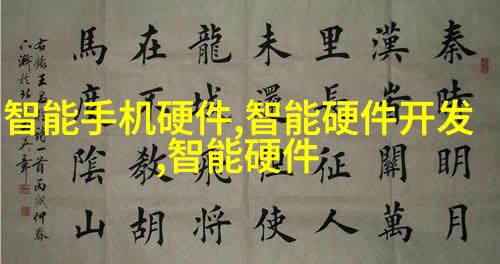 智能手机硬件,智能硬件开发
,智能硬件
秦時明月
漢旹關萬
里長征人
未還但使
龍城飛將
在不教胡
馬度陰山
右錄王 一首丙戌仲春